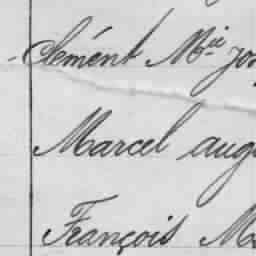 Clément Mie Jos
Marcel aug
François M